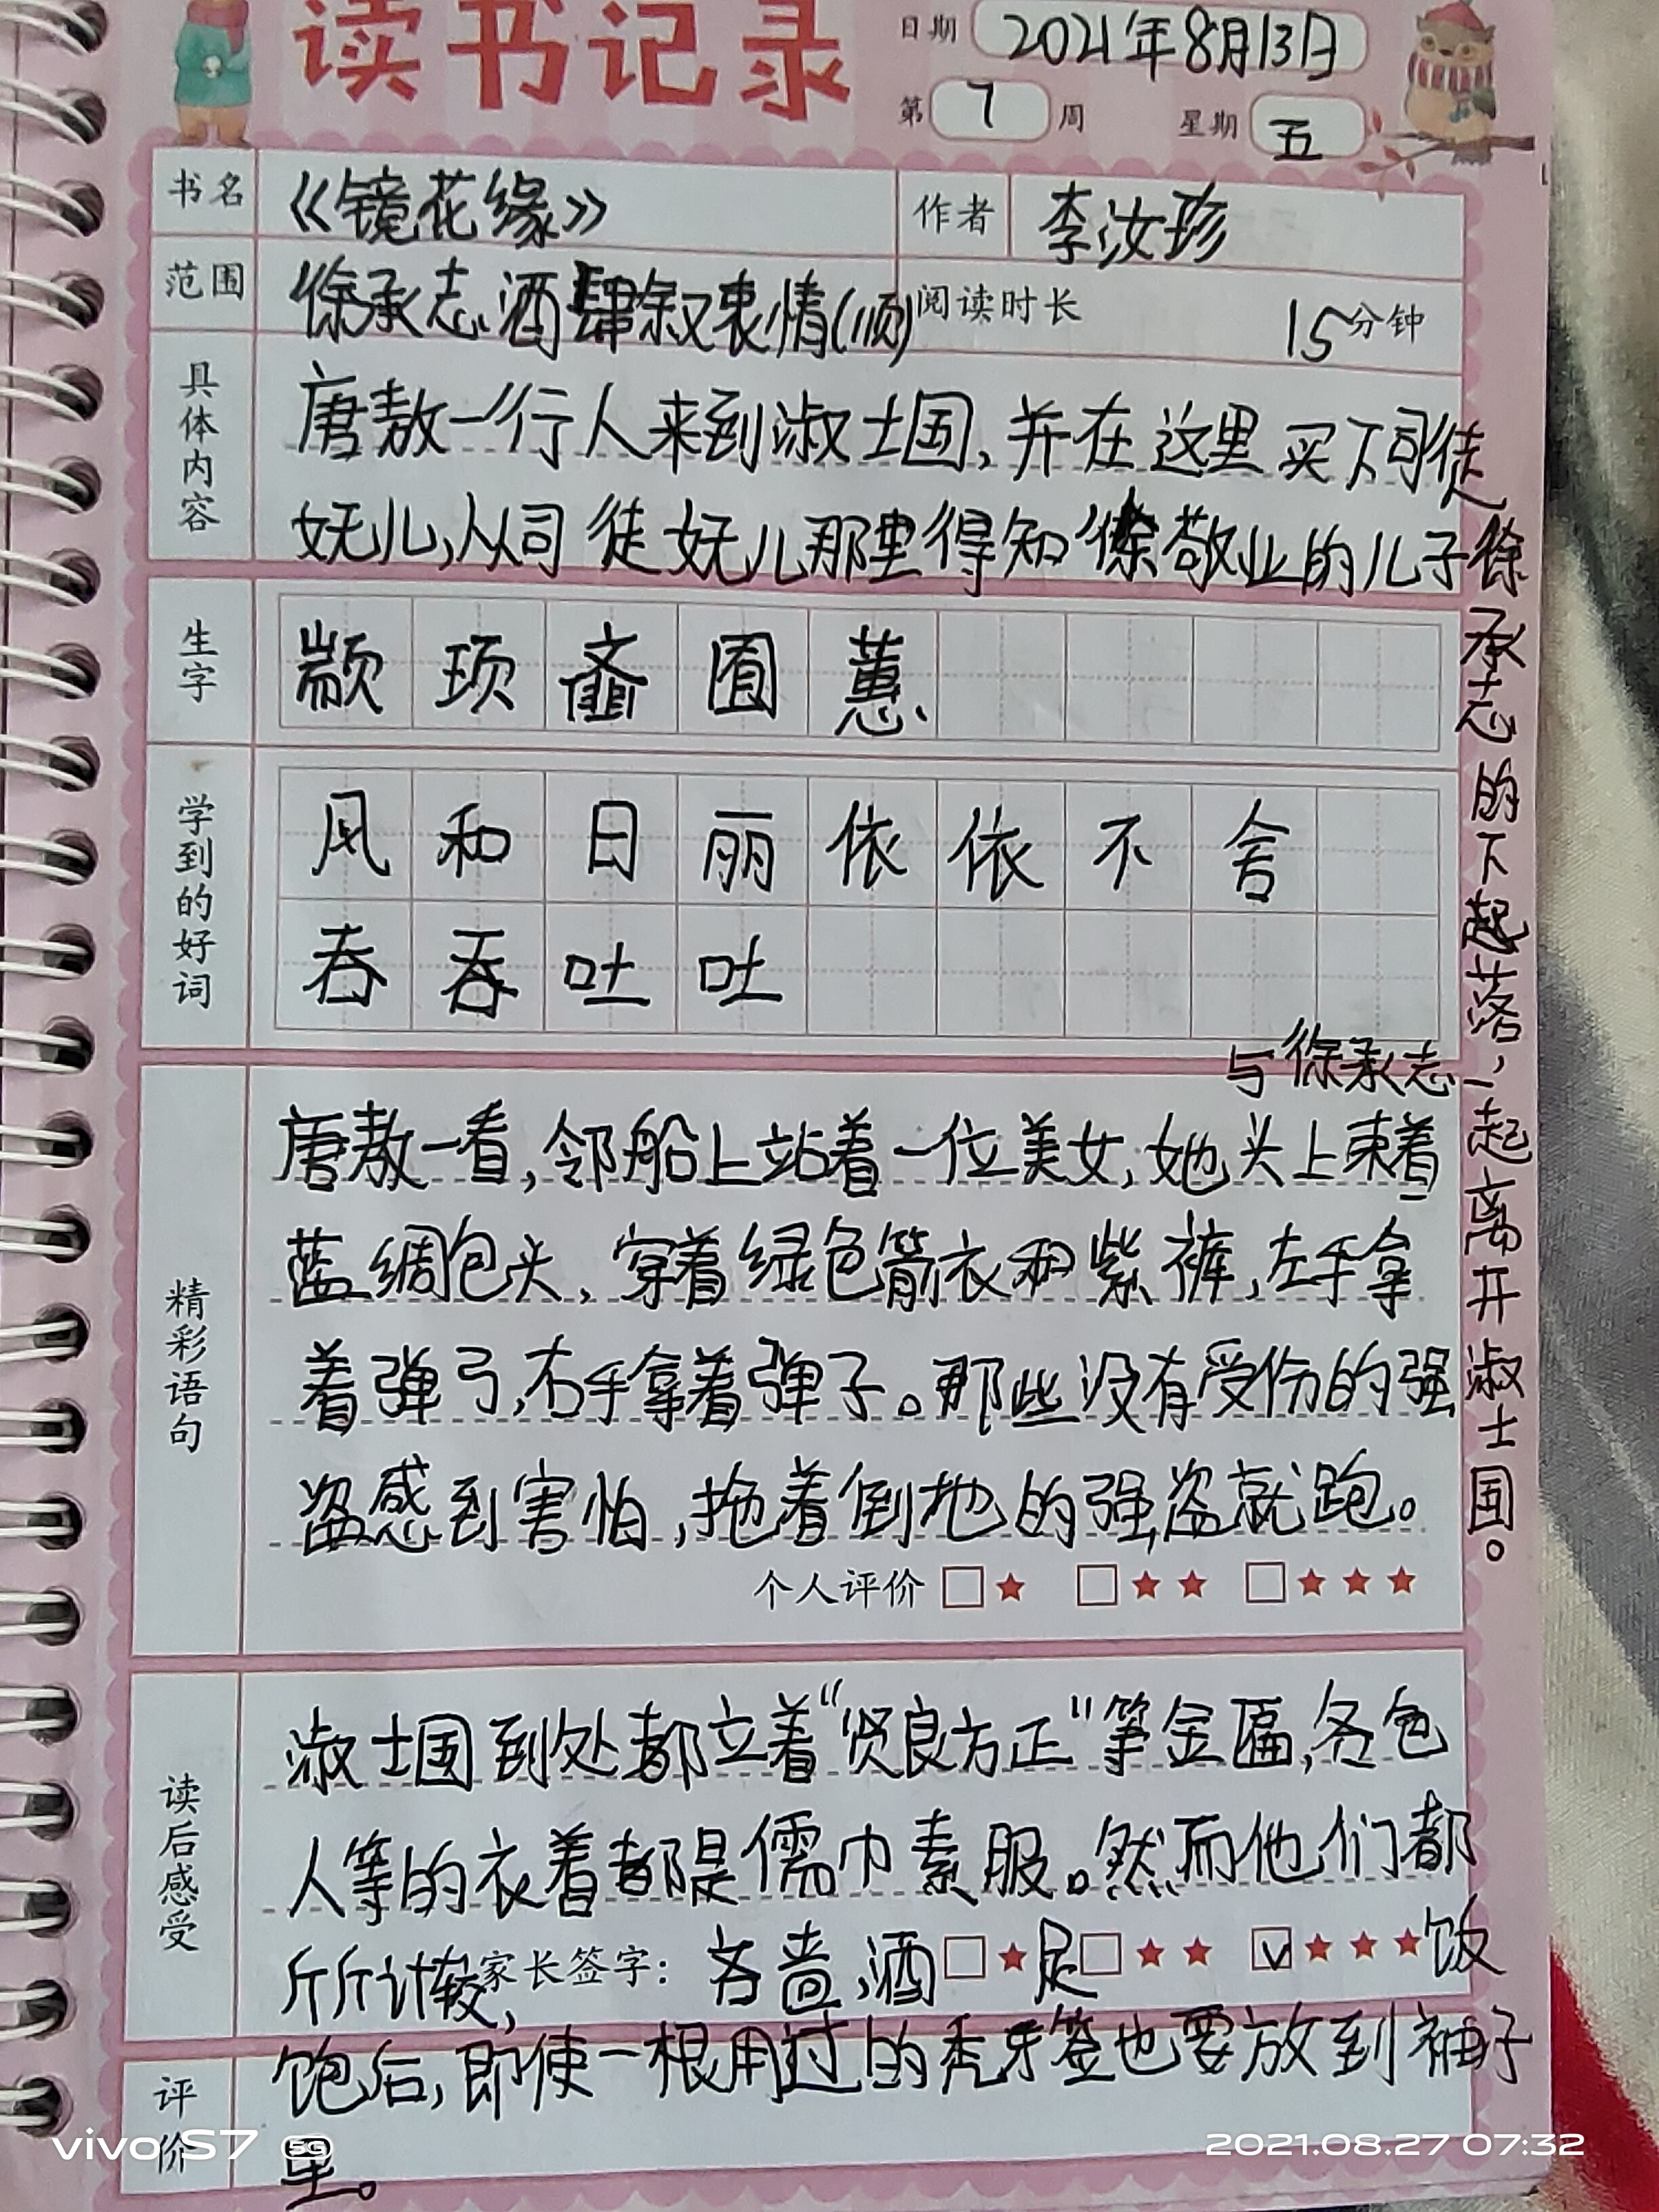 读书记录
日期 2021年8月13日
第 7 周 星期 五
书名 《镜花缘》 作者 李汝珍
范围 徐承志酒肆叙衷情(顺) 阅读时长 15分钟
具体内容
唐敖一行人来到淑士国,并在这里买下司徒
妩儿,从司徒妩儿那里得知徐敬业的儿子徐
承志的下起落,与徐承志一起离开淑士国。
生字
颛 顼 齑 囿 蕙
学到的好词
风和日丽依依不舍
吞吞吐吐
精彩语句
唐敖一看,邻船上站着一位美女,她头上束着
蓝绸包头,穿着绿色箭衣和紫裤,左手拿
着弹弓,右手拿着弹子。那些没有受伤的强
盗感到害怕,拖着倒地的强盗就跑。
个人评价 □★ □★★ □★★★
读后感受
淑士国到处都立着“贤良方正”等金匾,各色
人等的衣着都是儒巾素服。然而他们都
斤斤计较, 吝啬,酒足饭
家长签字: □★ □★★ ☑★★★
饱后,即使一根用过的秃牙签也要放到袖子
里。
评价
vivo S7 5G
2021.08.27 07:32